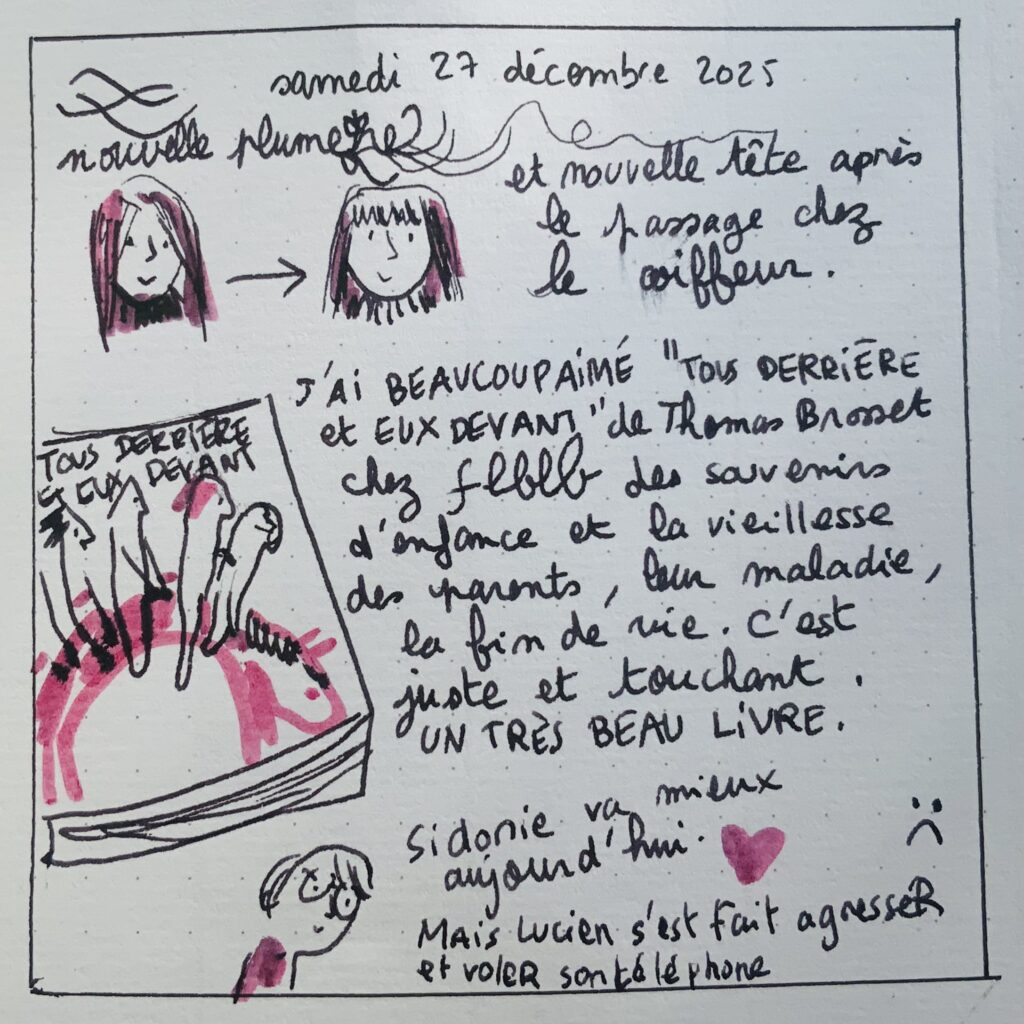 samedi 27 décembre 2025
nouvelle
et nouvelle tête après
le passage chez
le coiffeur.
J'AI BEAUCOUP AIMÉ "TOUS DERRIÈRE
et EUX DEVANT" de Thomas Brosset
chez flblb des souvenirs
d'enfance et la vieillesse
des parents, leur maladie,
la fin de vie. C'est
juste et touchant.
UN TRÈS BEAU LIVRE.
TOUS DERRIÈRE
et EUX DEVANT
Sidonie va mieux
aujourd'hui.
MAis Lucien s'est fait agresseR
et voleR son téléphone